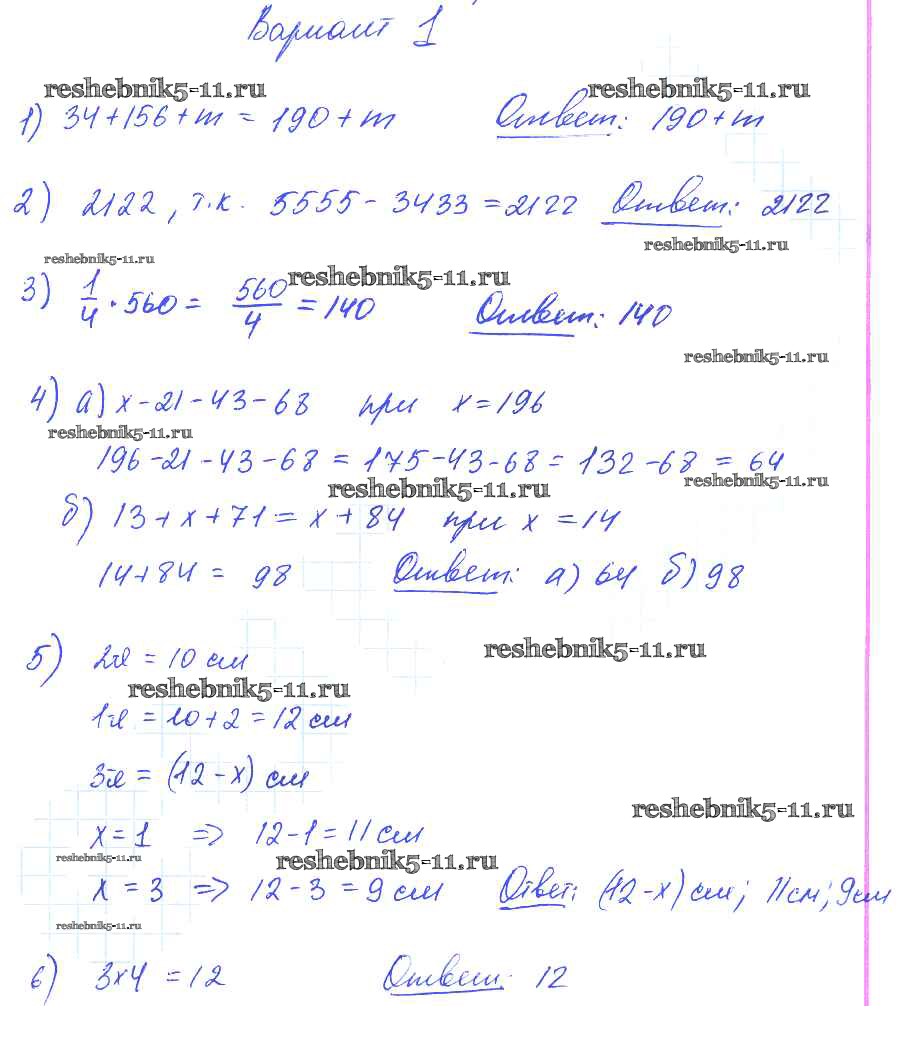 Вариант 1
reshebnik5-11.ru reshebnik5-11.ru
1) 34+156+m = 190+m Ответ: 190+m
2) 2122, т.к. 5555 - 3433 = 2122 Ответ: 2122
reshebnik5-11.ru
reshebnik5-11.ru reshebnik5-11.ru
3) 1/4 · 560 = 560/4 = 140 Ответ: 140
reshebnik5-11.ru
4) а) x - 21 - 43 - 68 при x = 196
reshebnik5-11.ru
196 - 21 - 43 - 68 = 175 - 43 - 68 = 132 - 68 = 64
reshebnik5-11.ru
reshebnik5-11.ru
б) 13 + x + 71 = x + 84 при x = 14
14 + 84 = 98 Ответ: а) 64 б) 98
reshebnik5-11.ru
5) 2й = 10 см
reshebnik5-11.ru
1й = 10 + 2 = 12 см
3й = (12 - x) см
reshebnik5-11.ru
x = 1 => 12 - 1 = 11 см
reshebnik5-11.ru reshebnik5-11.ru
x = 3 => 12 - 3 = 9 см Ответ: (12 - x) см; 11см; 9см
reshebnik5-11.ru
6) 3x4 = 12 Ответ: 12